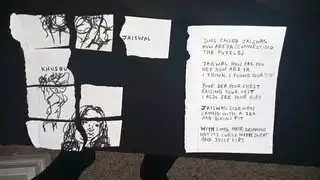 JAISWAL
KHUSBU
SONG CALLED JAISWAL
HOW ARE YA (CONNECTING
THE PUZZLE)
JAISWAL HOW ARE YOU
HEY HOW ARE YA
I THINK I FOUND YOUR
YOUR BRA YOUR CHEST
RAISING YOUR VEST
I ALSO SEE YOUR HIPS
JAISWAL SIDEWAYS
LAYING WITH A BRA
AND BIKINI FIT
WITH LONG HAIR DRAWING
HAT ITS CURLY WITH SWEAT
AND JUICY LIPS